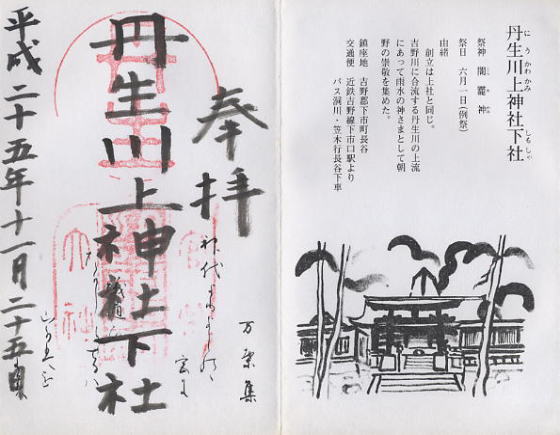 丹生川上神社下社
にうかわかみ しもしゃ
祭神 闇龗神
祭日 六月一日(例祭)
由緒
創立は上社と同じ。
吉野川に合流する丹生川の上流
にあって雨水の神さまとして朝
野の崇敬を集めた。
鎮座地 吉野郡下市町長谷
交通便 近鉄吉野線下市口駅より
バス洞川・笠木行長谷下車
奉拝
万葉集
丹生川上神社下社
平成二十五年十一月二十五日